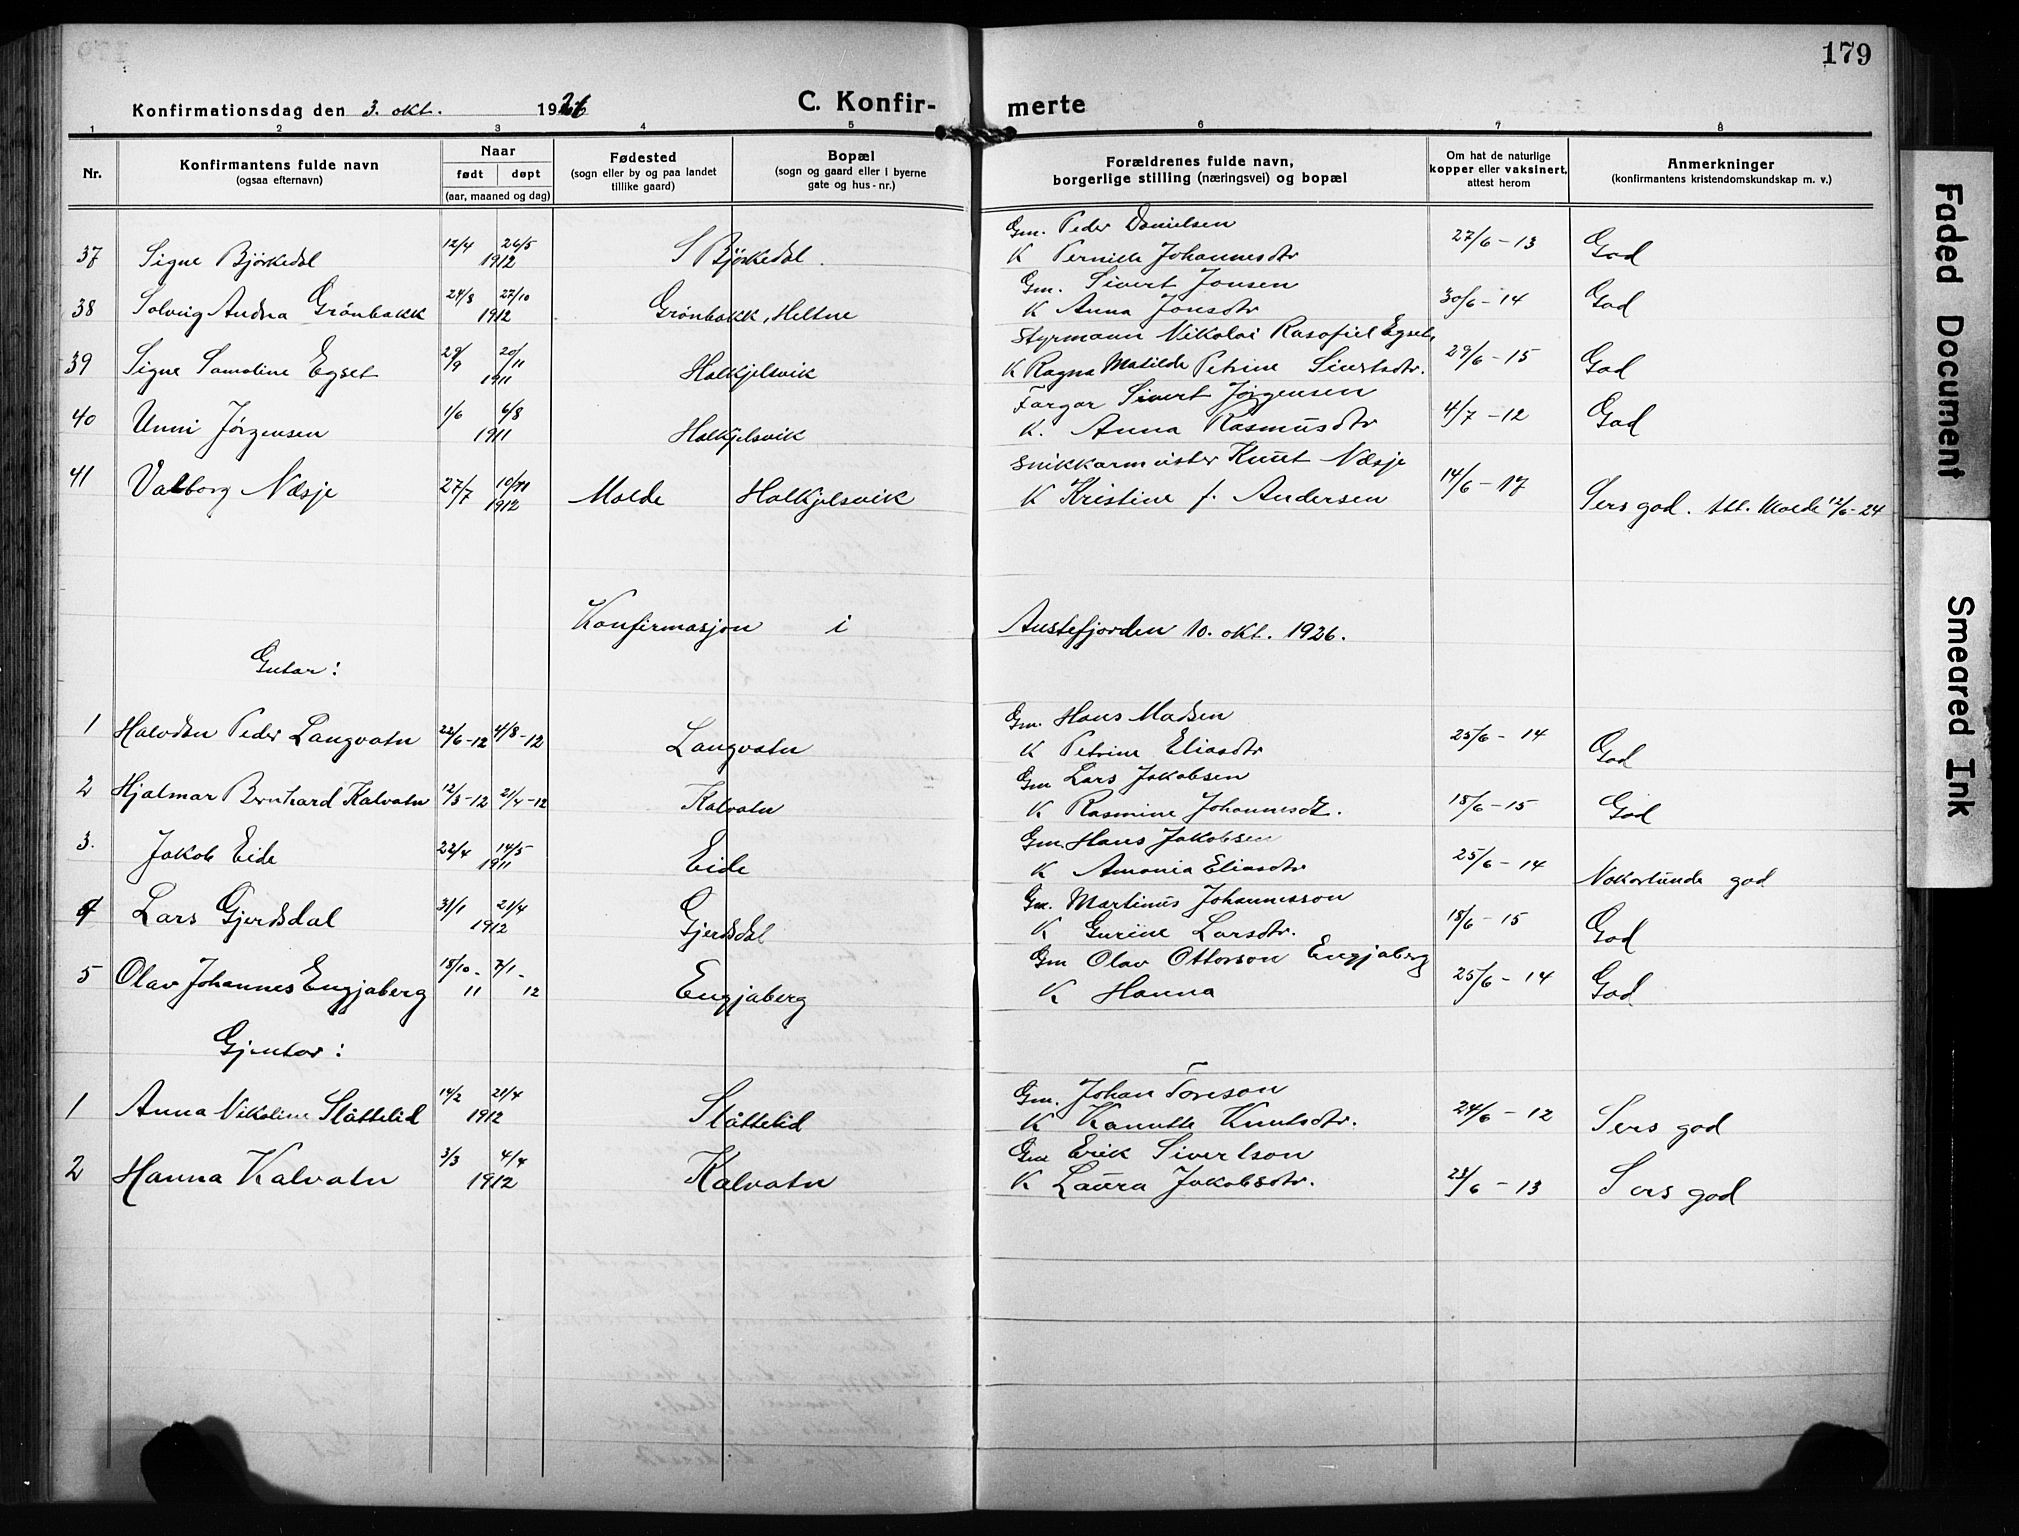 179
Konfirmationsdag den 3. okt. 1926
C. Konfir- merte
1 2 3 4 5 6 7 8
Nr.
Konfirmantens fulde navn
(ogsaa efternavn)
Naar
født døpt
(aar, maaned og dag)
Fødested
(sogn eller by og paa landet
tillike gaard)
Bopæl
(sogn og gaard eller i byerne
gate og hus-nr.)
Forældrenes fulde navn,
borgerlige stilling (næringsvei) og bopæl
Om hat de naturlige
kopper eller vaksinert,
attest herom
Anmerkninger
(konfirmantens kristendomskundskap m. v.)
Gm. Peder Danielsen
37 Signe Bjørkedal 12/4 26/5 1912 S Bjørkedal. K Pernille Johannesdtr 27/6-13 God
Gm. Sivert Jonsen
38 Solveig Andrea Grønbakk 24/8 27/10 1912 Grønbakk, Heltne K Anna Jonsdtr 30/6-14 God
Styrmann Nikolai Rasofiel Egset,
39 Signe Samoline Egset 29/9 20/11 1911 Halkjelsvik K Ragna Matilde Petrine Sivertsdtr. 29/6-15 God
Fargar Sivert Jørgensen
40 Unni Jørgensen 1/6 6/8 1911 Halkjelsvik K. Anna Rasmusdtr 4/7-12 God
Snikkarmeister Knut Næsje
41 Valborg Næsje 27/7 10/11 1912 Molde Halkjelsvik K Kristine f. Andersen 14/6-17 Sers god. Att. Molde 12/6-24
Konfirmasjon i Austefjorden 10. okt. 1926.
Gutar:
Gm. Hans Madsen
1 Halvdan Peder Langvatn 22/6-12 4/8-12 Langvatn K Petrine Eliasdtr 25/6-14 God
Gm Lars Jakobsen
2 Hjalmar Bernhard Kalvatn 12/3-12 21/4-12 Kalvatn K Rasmine Johannesdt. 18/6-15 God
Gm. Hans Jakobsen
3. Jakob Eide 22/4 14/5 1911 Eide K Amania Eliasdtr 25/6-14 Nokorlunde god
Gm. Martinus Johannesson
4 Lars Gjerdsdal 31/1 21/4 1912 Gjerdsdal K Gurine Larsdtr. 18/6-15 God
Gm Olav Ottorson Engjaberg
5 Olav Johannes Engjaberg 15/10-11 7/1-12 Engjaberg K Hanna 25/6-14 God
Gjentor:
Gm. Johan Toreson
1 Anna Nikoline Slåttelid 14/2 21/4 1912 Slåttelid K Kanutte Knutsdtr. 24/6-12 Sers god
Gm Erik Sivertson
2 Hanna Kalvatn 3/3 4/4 1912 Kalvatn K Laura Jakobsdtr. 21/6-13 Sers god
Faded Document
Smeared Ink